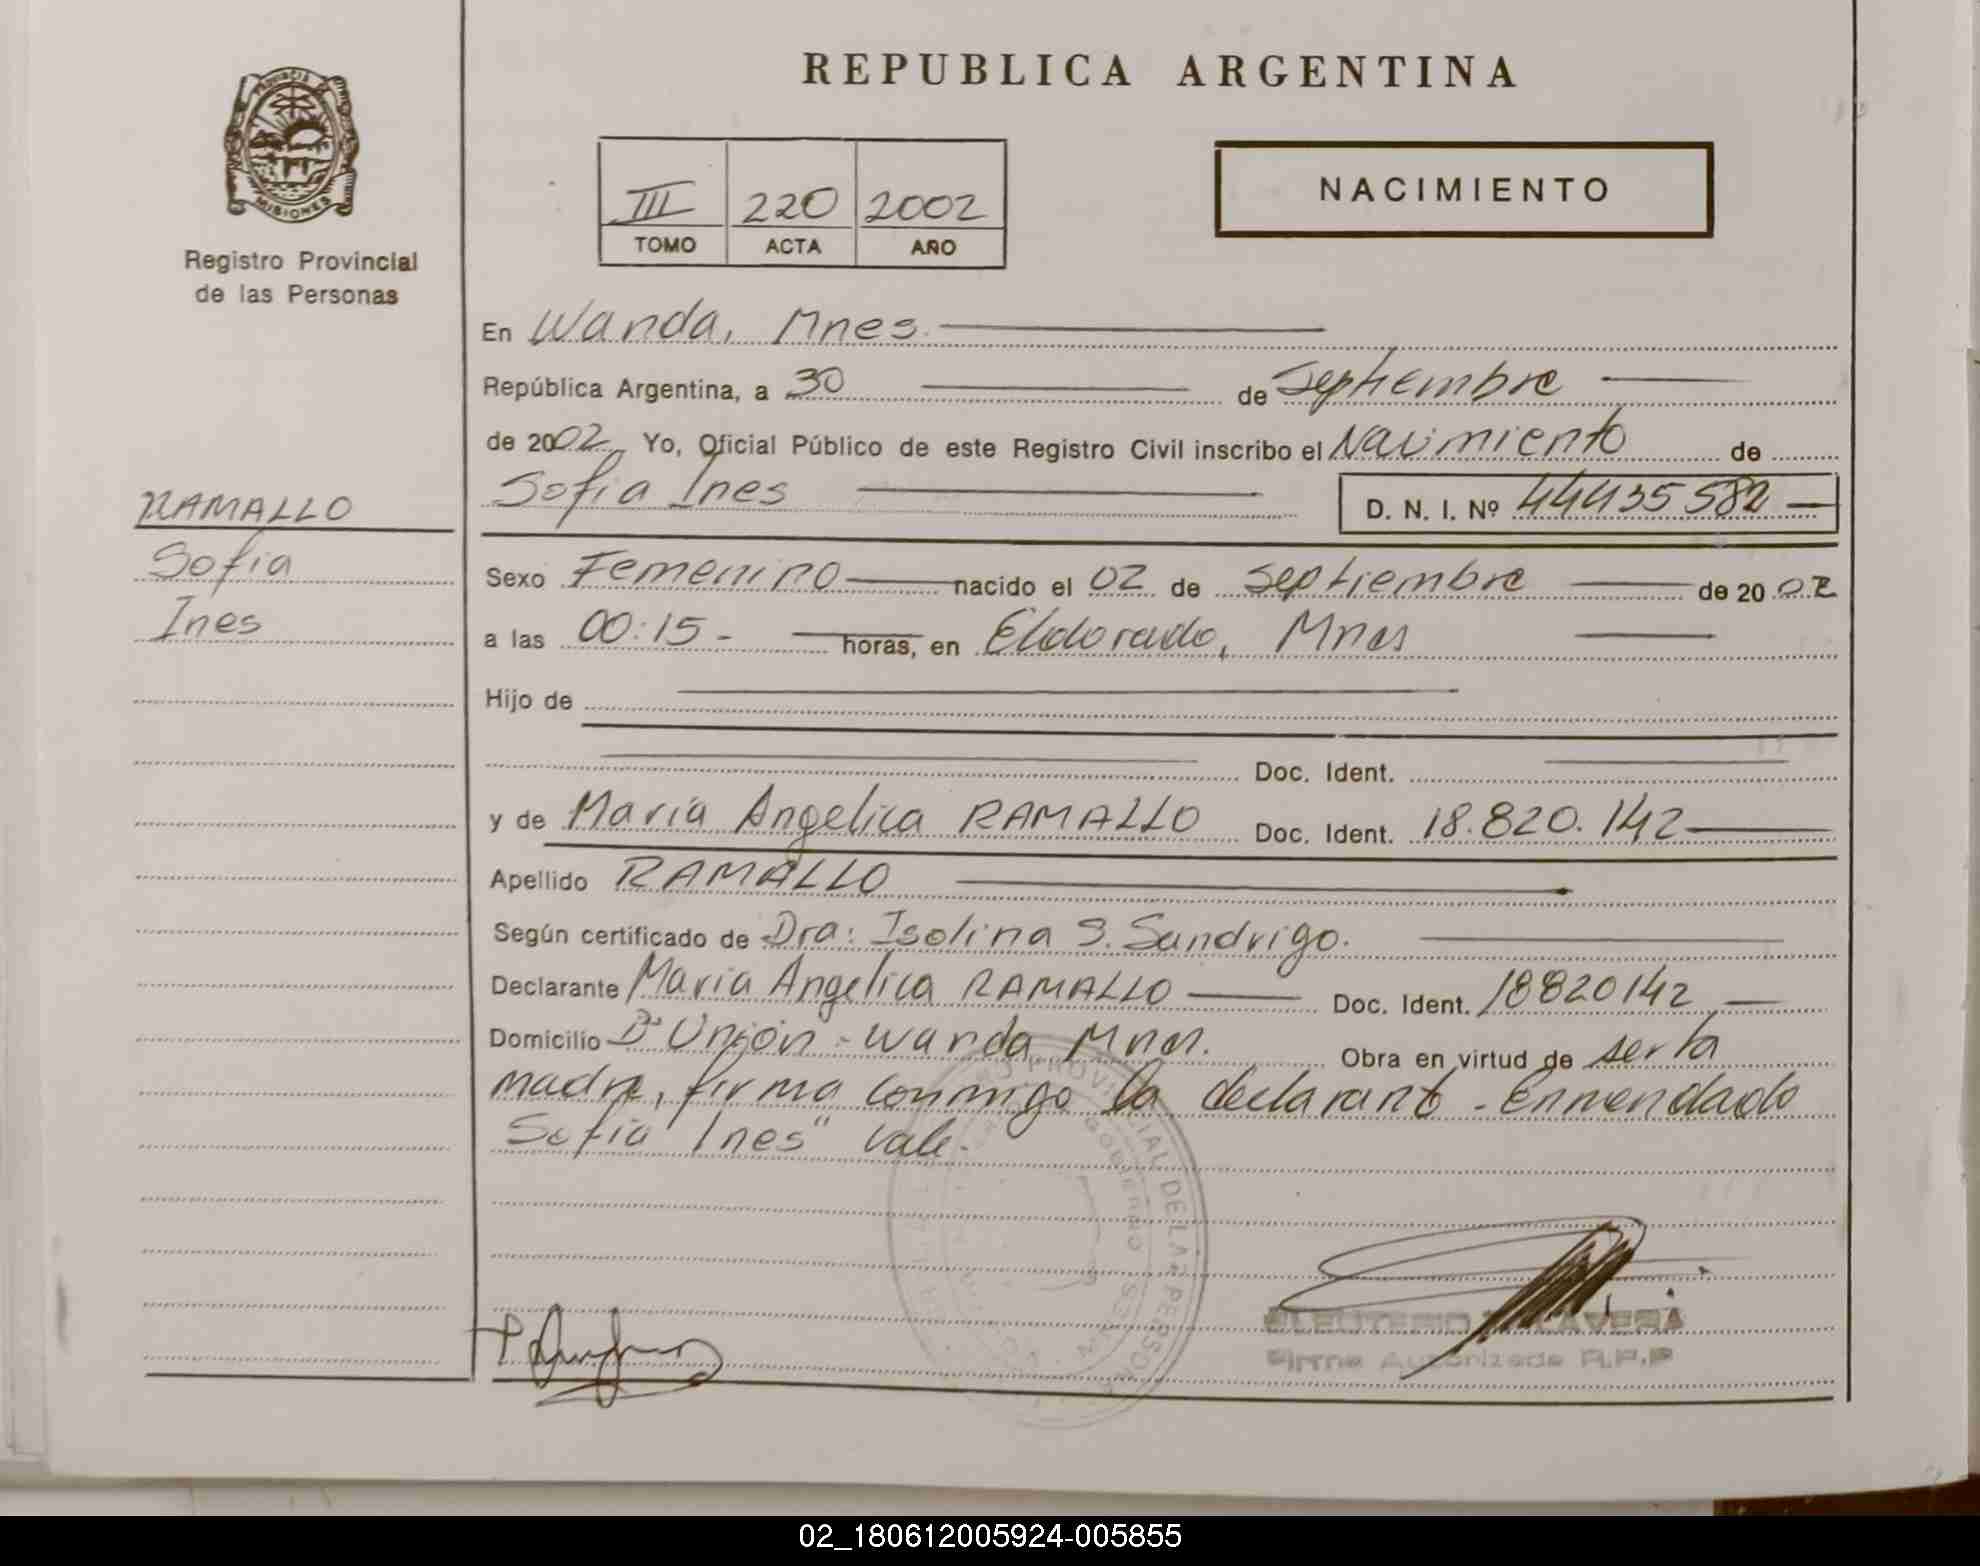 REPUBLICA ARGENTINA
PROVINCIA
MISIONES
Registro Provincial
de las Personas
III 220 2002
TOMO ACTA AÑO
NACIMIENTO
En Wanda, Mnes.
República Argentina, a 30 de Septiembre
de 2002 Yo, Oficial Público de este Registro Civil inscribo el Nacimiento de
Sofia Ines D. N. I. Nº 44435582
RAMALLO
Sofia
Ines
Sexo Femenino nacido el 02 de Septiembre de 2002
a las 00:15- horas, en Eldorado, Mnes
Hijo de
Doc. Ident.
y de María Angelica RAMALLO Doc. Ident. 18.820.142
Apellido RAMALLO
Según certificado de Dra: Isolina S. Sandrigo.
Declarante María Angelica RAMALLO Doc. Ident. 18820142
Domicilio Bº Unión - Wanda Mnes. Obra en virtud de ser la
madre, firma conmigo la declarante - Enmendado
Sofia Ines" Vale.
PROVINCIAL DE LAS PERSONAS
GOBIERNO
ELEUTERIO TALAVERA
Firma Autorizada R.P.P
02_180612005924-005855